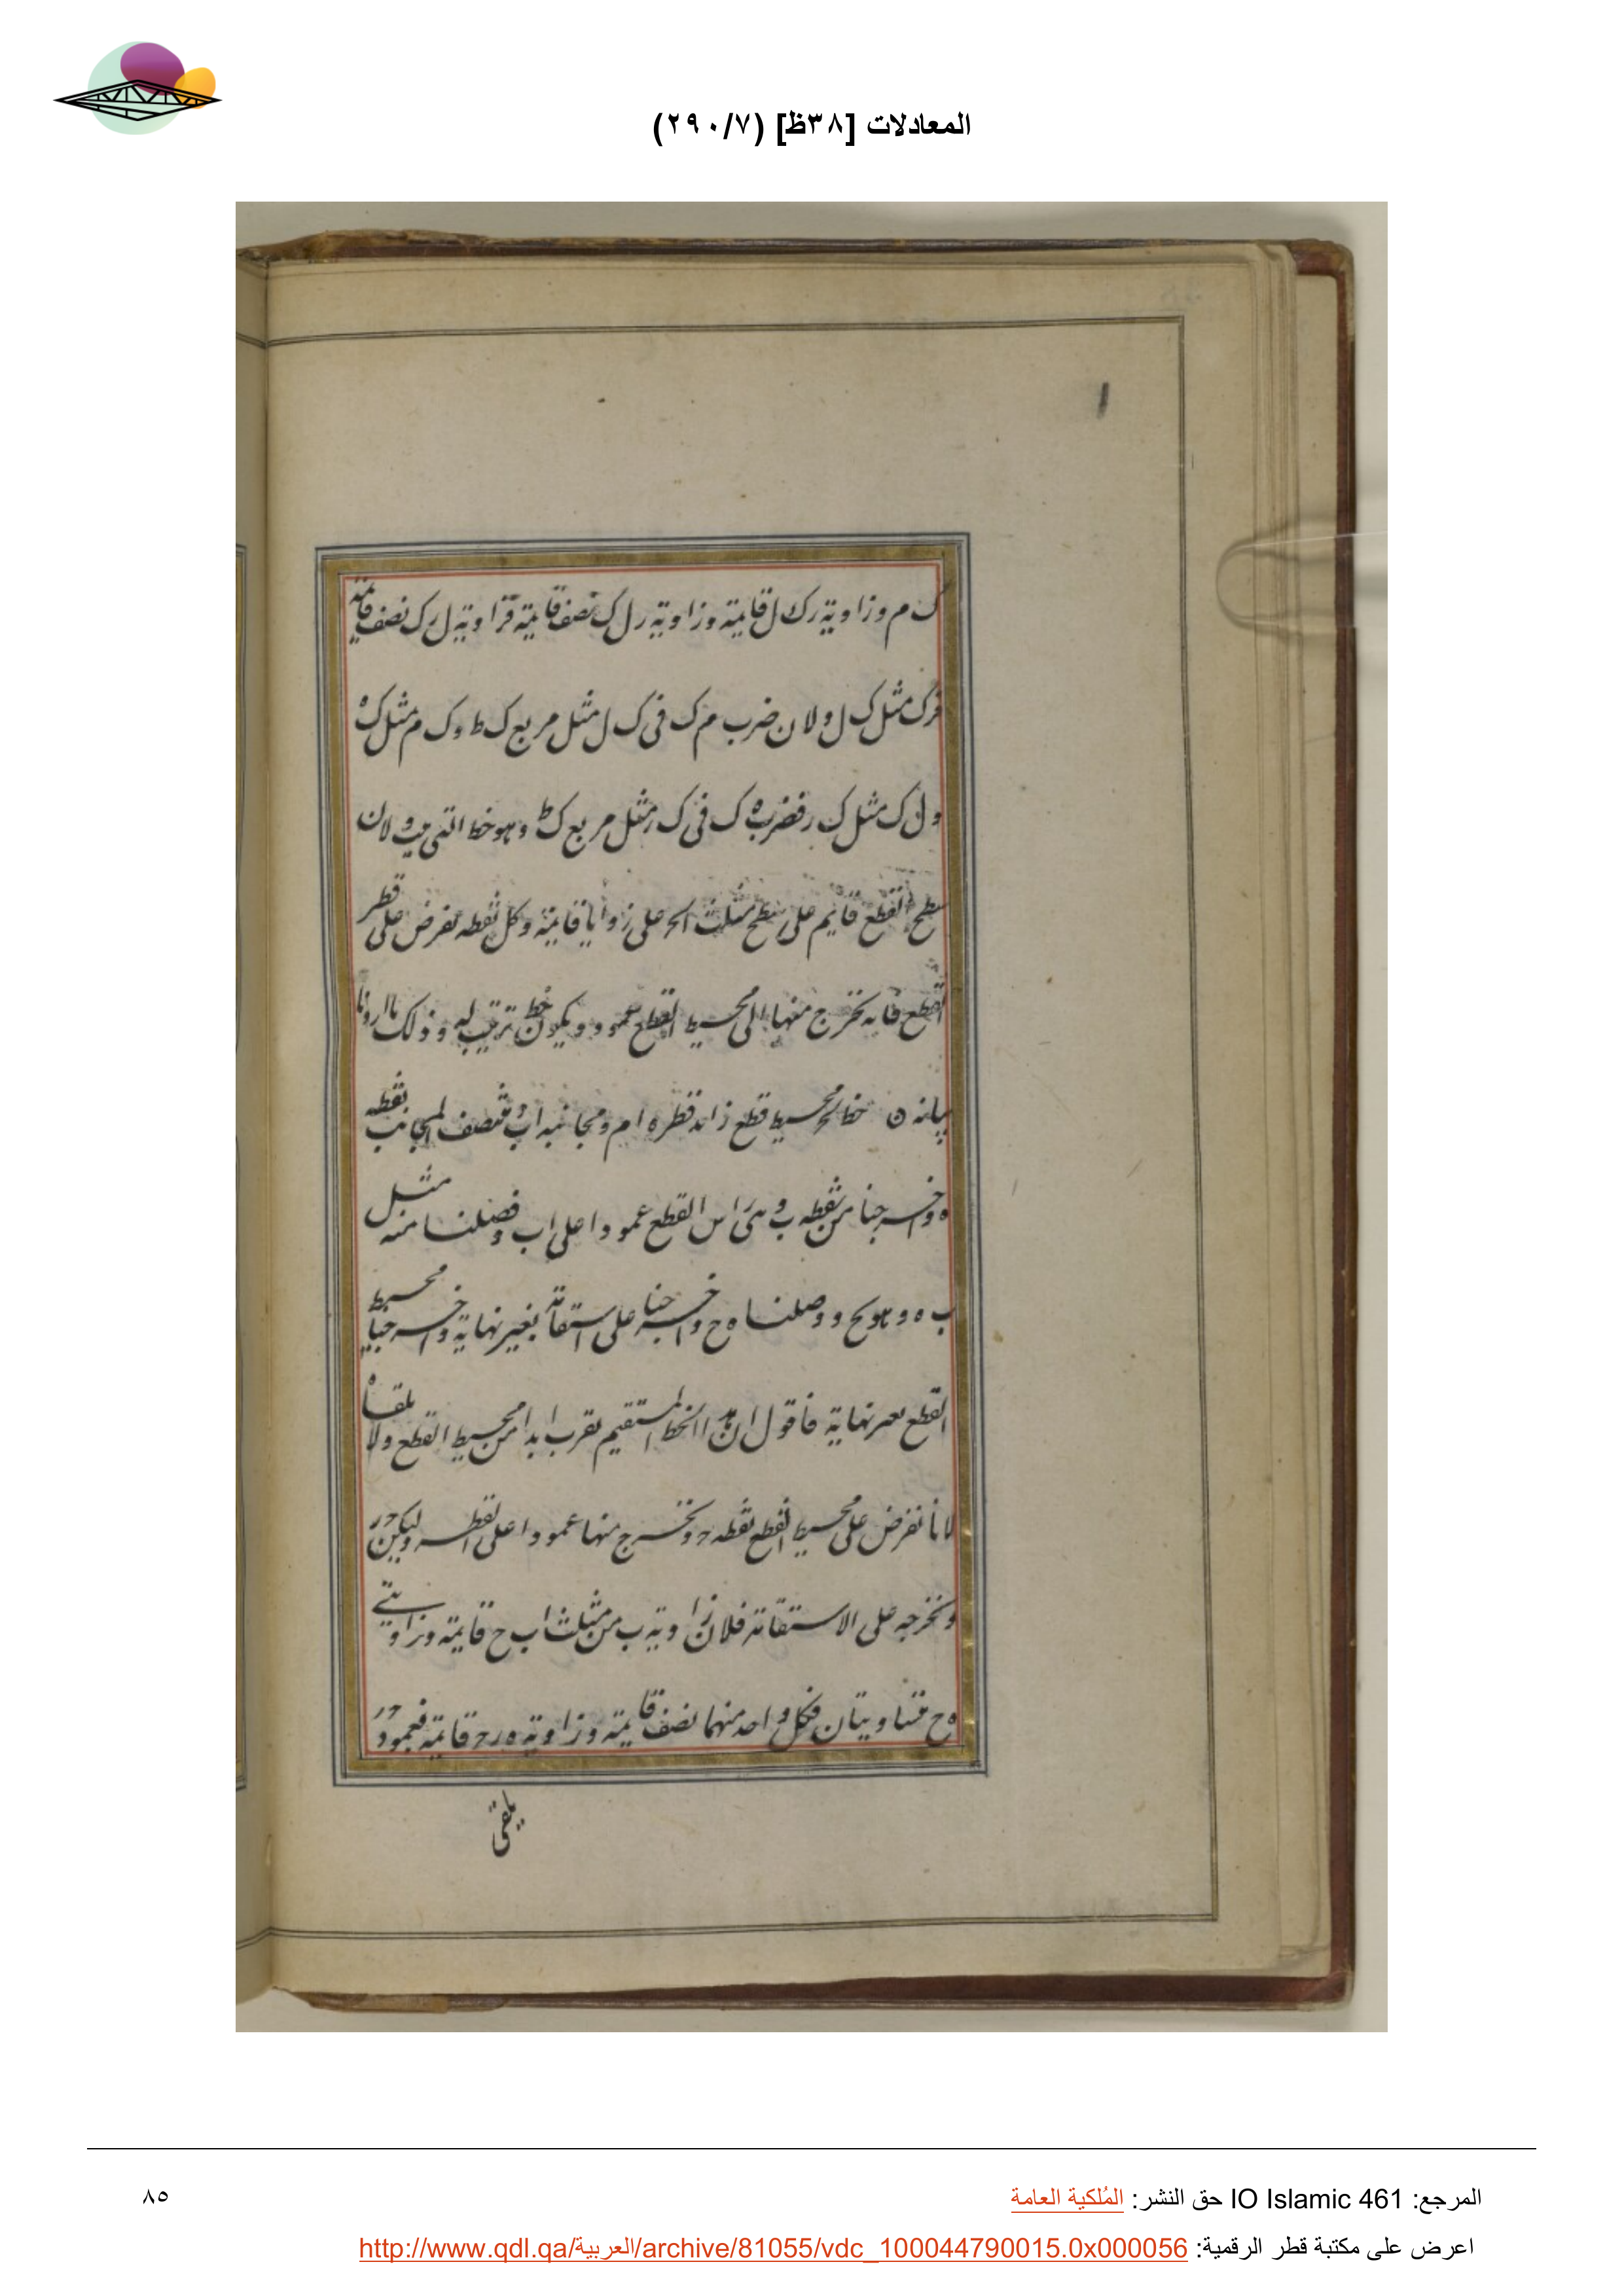 المعادلات [٣٨ظ] (٢٩٠/٧)
ك م وزاوية رك ل قايمة وزاوية رل ك نصف قايمة فزاوية ل رك نصف قايمة
فرك مثل ك ل ولان ضرب م ك فى ك ل مثل مربع ك ط وك م مثل ك ه
ول ك مثل ك ر فضرب ه ك فى ك ر مثل مربع ك ط وهو خط الترتيب ولان
سطح القطع قايم على سطح مثلث على زوايا قايمة وكل نقطه تفرض على قطر
القطع فانه تخرج منها الى محيط القطع عمود ويكون خط ترتيب له وذلك ما اردنا
بيانه ن خط محيط قطع زايد قطره ام ومجانبه اب فنصف المجانب نقطه
ه واخرجنا من نقطه ب وهى راس القطع عمودا على اب وفصلنا منه مثل
ب ه وهو ب ح ووصلنا ه ح واخرجنا على استقامة بغير نهاية واخرجنا محيط
القطع بغير نهاية فاقول ان هذا الخط المستقيم يقرب ابدا من محيط القطع ولا يلقاه
لانا نفرض على محيط القطع نقطه ح ونخرج منها عمودا على القطر وليكن ح ر
ونخرجه على الاستقامة فلان زاوية ب من مثلث ا ب ح قايمة وزاويتى
ه ح متساويتان فكل واحد منهما نصف قايمة وزاوية ه ر ح قايمة فعمود ح ر
يلقى
المرجع: IO Islamic 461 حق النشر: المُلكية العامة
٨٥
اعرض على مكتبة قطر الرقمية: http://www.qdl.qa/العربية/archive/81055/vdc_100044790015.0x000056